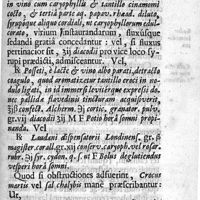 in vino cum caryophyllis & tantillo cinamomi
cocto, & tertia parte aq. papav. rhœad. diluto,
syrupoque aliquo cordiali, ut caryophyllorum edul-
corato, virium instaurandarum, fluxúsque
sedandi gratiâ concedantur: vel, si fluxus
pertinacior sit, ʒij diacodii pro vice loco sy-
rupi prædicti, admisceantur. Vel,
℞ Posseti, è lacte & vino albo parati, detracto
coagulo, quod armaturæ tantillo croci in no-
dulo ligati, in id immersi leviterque expressi do-
nec pallidè flavedinis tincturam acquisiverit,
℥iij confect. Alcherm. ℈j cortic. granator. pulv.
gr. vij diacodii ʒij M F Potio horâ somni propi-
nanda. Vel
℞ Laudani dispensatorii Londinens. gr. ß
magister. corall. gr. xij conserv. caryoph. vel rosar.
rubr. ʒß syr. cydon. q. s. ut F Bolus deglutiendus
vesperi horâ somni.
Quod si obstructiones adfuerint, Crocus
martis vel sal chalybis mane præscribantur:
Ut,